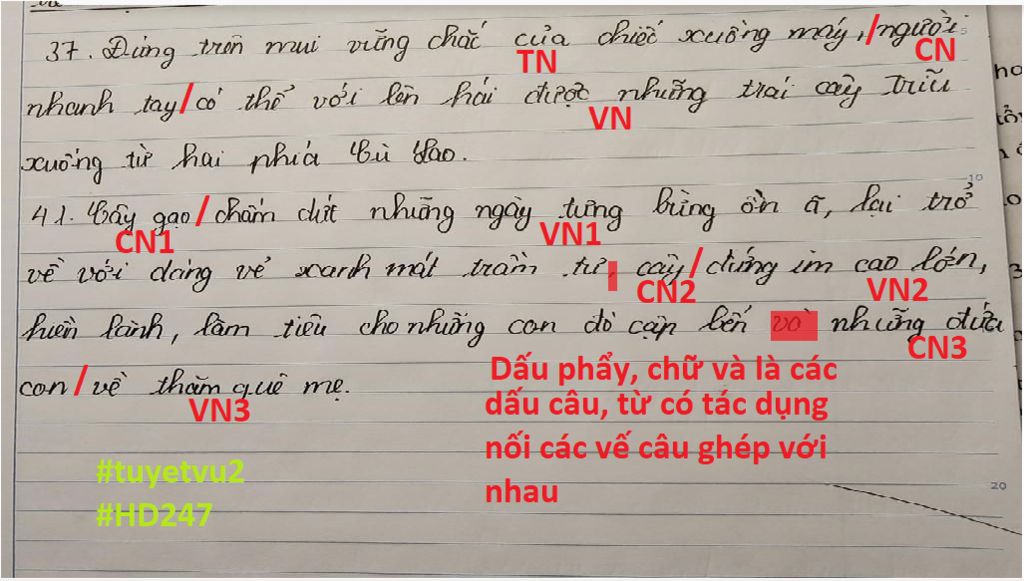 37. Đứng trên mui vững chắc của chiếc xuồng máy,/người
TN
CN
nhanh tay/có thể với lên hái được những trái cây trĩu
VN
xuống từ hai phía cù lao.
10
41. Cây gạo/chấm dứt những ngày tưng bừng ồn ã, lại trở
CN1
VN1
về với dáng vẻ xanh mát trầm tư, cây/đứng im cao lớn,
CN2
VN2
hiền lành, làm tiêu cho những con đò cập bến và những đứa
CN3
con/về thăm quê mẹ.
VN3
Dấu phẩy, chữ và là các
dấu câu, từ có tác dụng
nối các vế câu ghép với
nhau
#tuyetvu2
#HD247
20